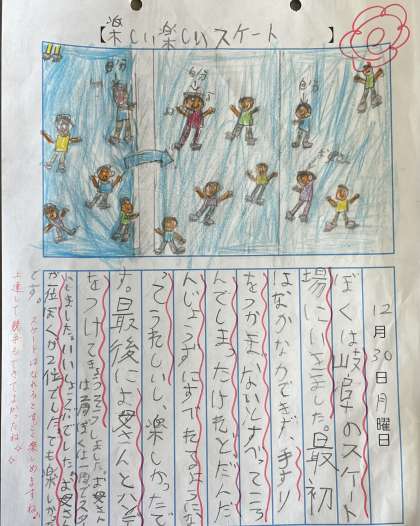 【楽しい楽しいスケート】
自分
自分
自分
お母さん
12月30日月曜日
ぼくは岐阜のスケート
場にいきました。最初
はなかなかできず、手すり
をつかまないとすべってころ
んでしまったけれどだんだ
んじょうずにすべれるようにな
ってうれしいし楽しかったで
す。最後にお母さんとハンデ
をつけてきょうそうしました。お母さん
は肩ぼくは
しました。いいしょうぶでした。お母さん
が1位ぼくが2位でしたとても楽しかった
です。
スケートはなれるとすごく楽しめますね。
上達して勝手もできてよかったね